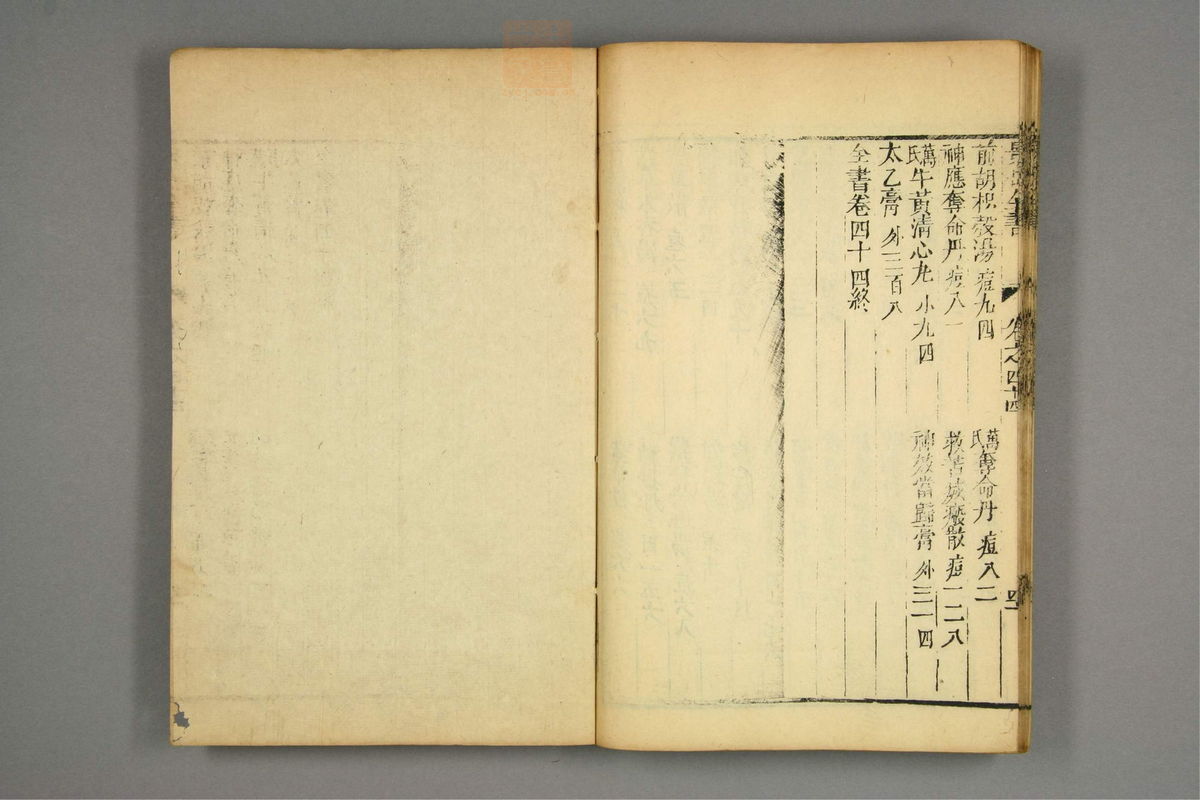 景岳全書 卷之四十四
前胡枳殼湯 痘九四
萬氏奪命丹 痘八二
神應奪命丹 痘八一
救苦滅瘢散 痘一二八
萬氏牛黃清心丸 小九四
神效當歸膏 外三一四
太乙膏 外三百八
全書卷四十四終